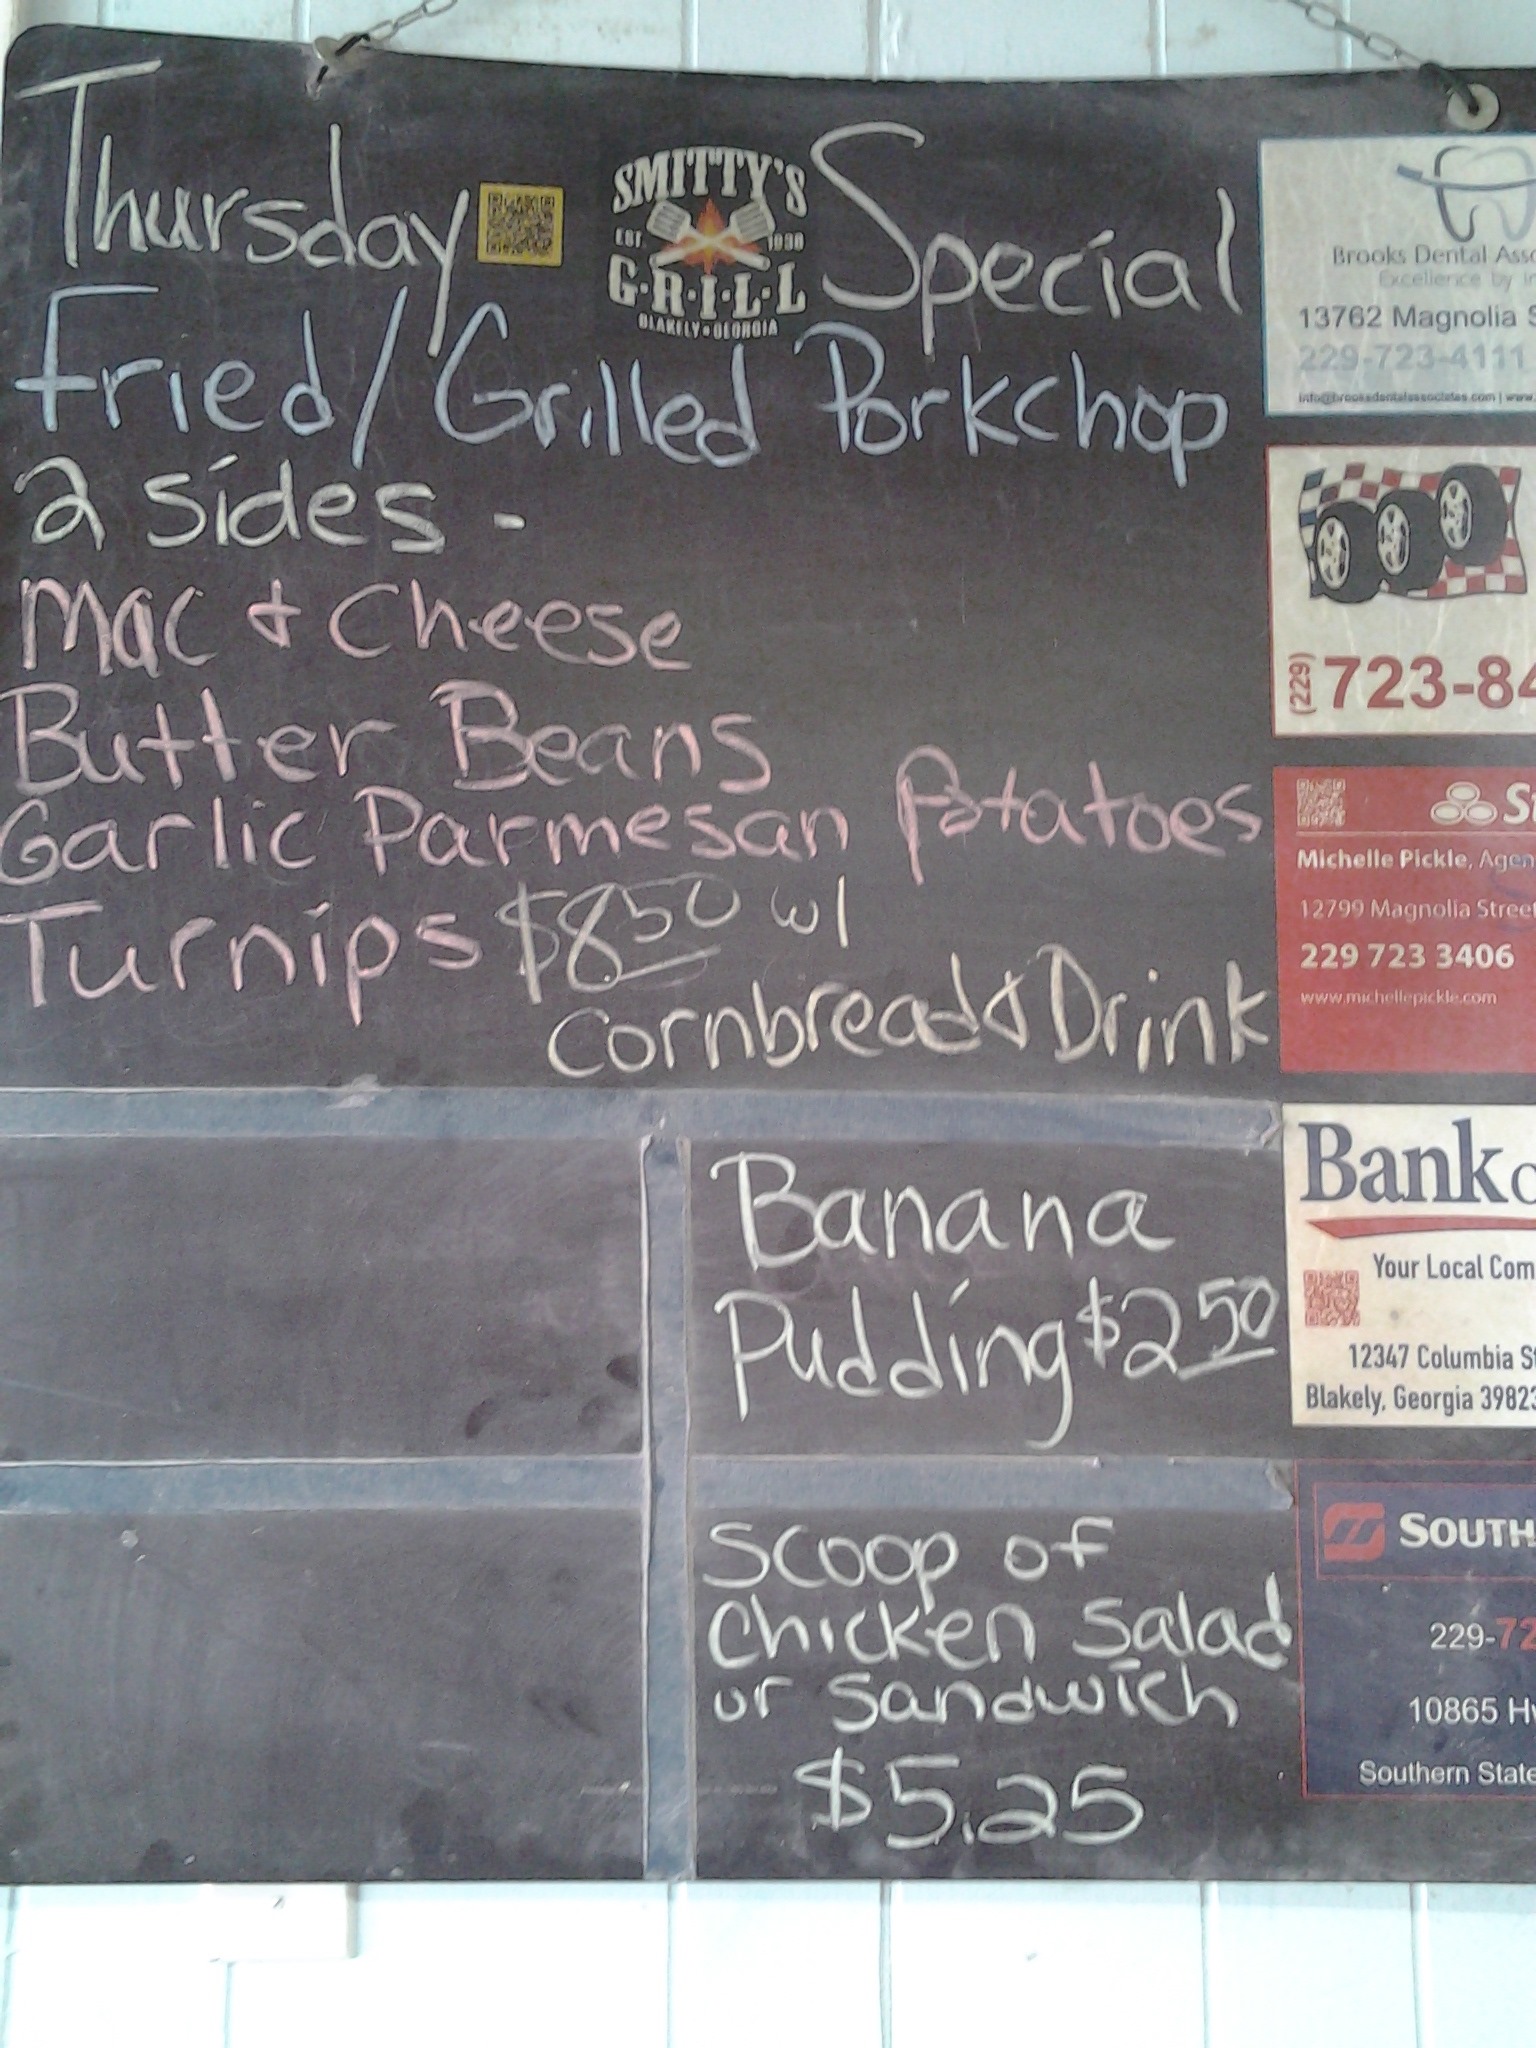 Thursday
SMITTY'S
EST. 1938
G·R·I·L·L
BLAKELY • GEORGIA
Special
Fried/Grilled Porkchop
2 sides -
Mac & Cheese
Butter Beans
Garlic Parmesan Potatoes
Turnips $8.50 w/
Cornbread & Drink
Banana
Pudding $2.50
Scoop of
Chicken Salad
or Sandwich
$5.25
Brooks Dental Asso
Excellence by
13762 Magnolia S
229-723-4111
info@brooksdentalassociates.com | www.
(229) 723-84
St
Michelle Pickle, Agen
12799 Magnolia Street
229 723 3406
www.michellepickle.com
Bank o
Your Local Com
12347 Columbia St
Blakely, Georgia 39823
SOUTH
229-72
10865 Hw
Southern State